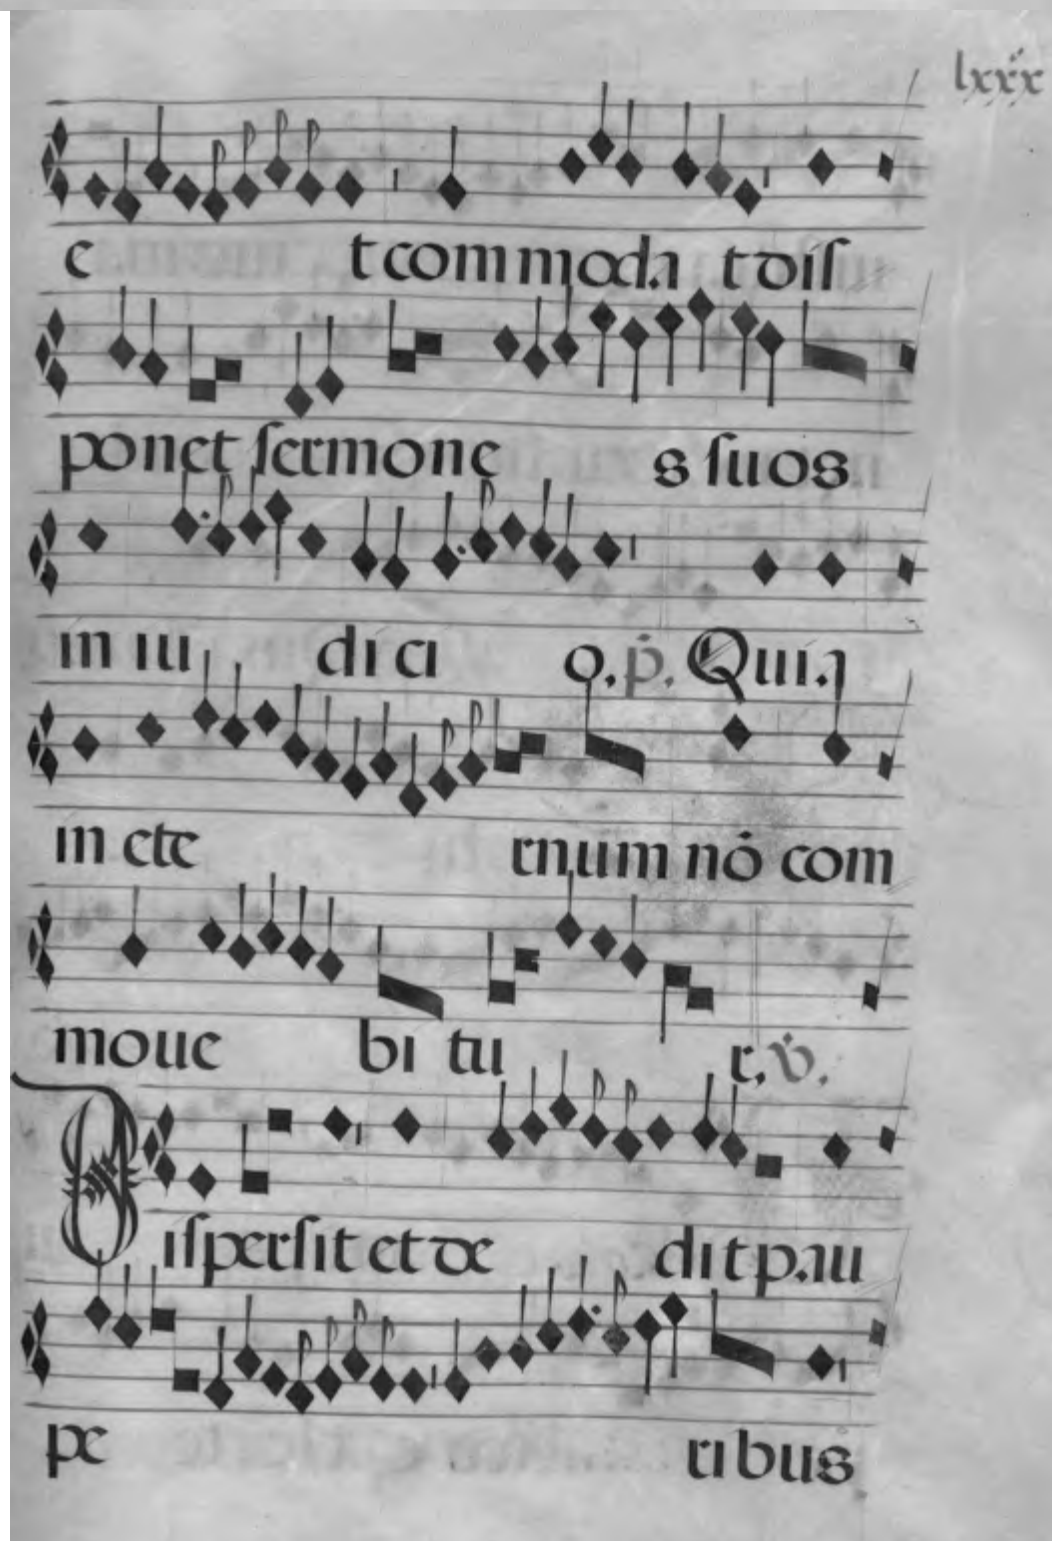 lxxx
e t commoda t dis
ponet sermone s suos
in iu di ci o. p̊. Quia
in ete rnum nō com
moue bi tu r. v̊.
Dispersit et de dit pau
pe ribus